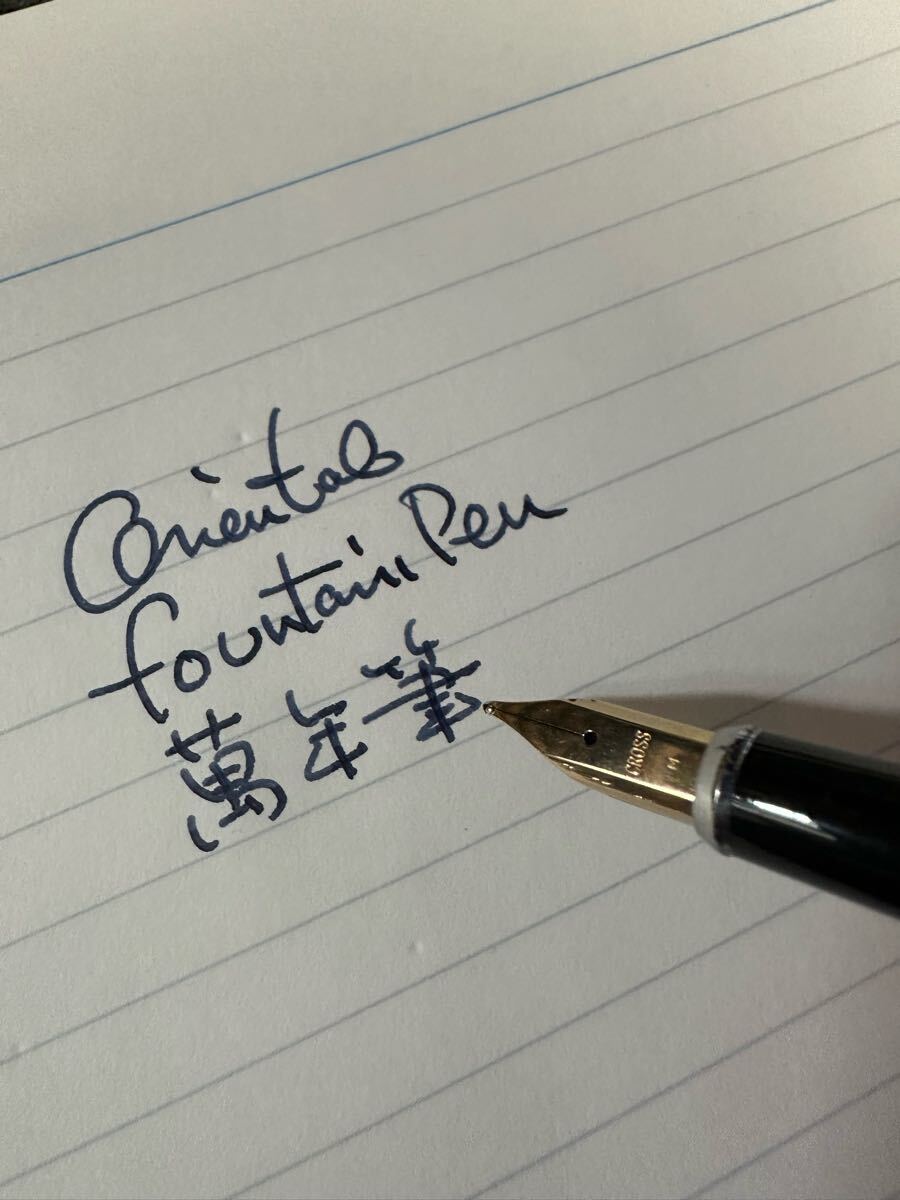 Orientals
fountain Pen
萬年筆
CROSS
14